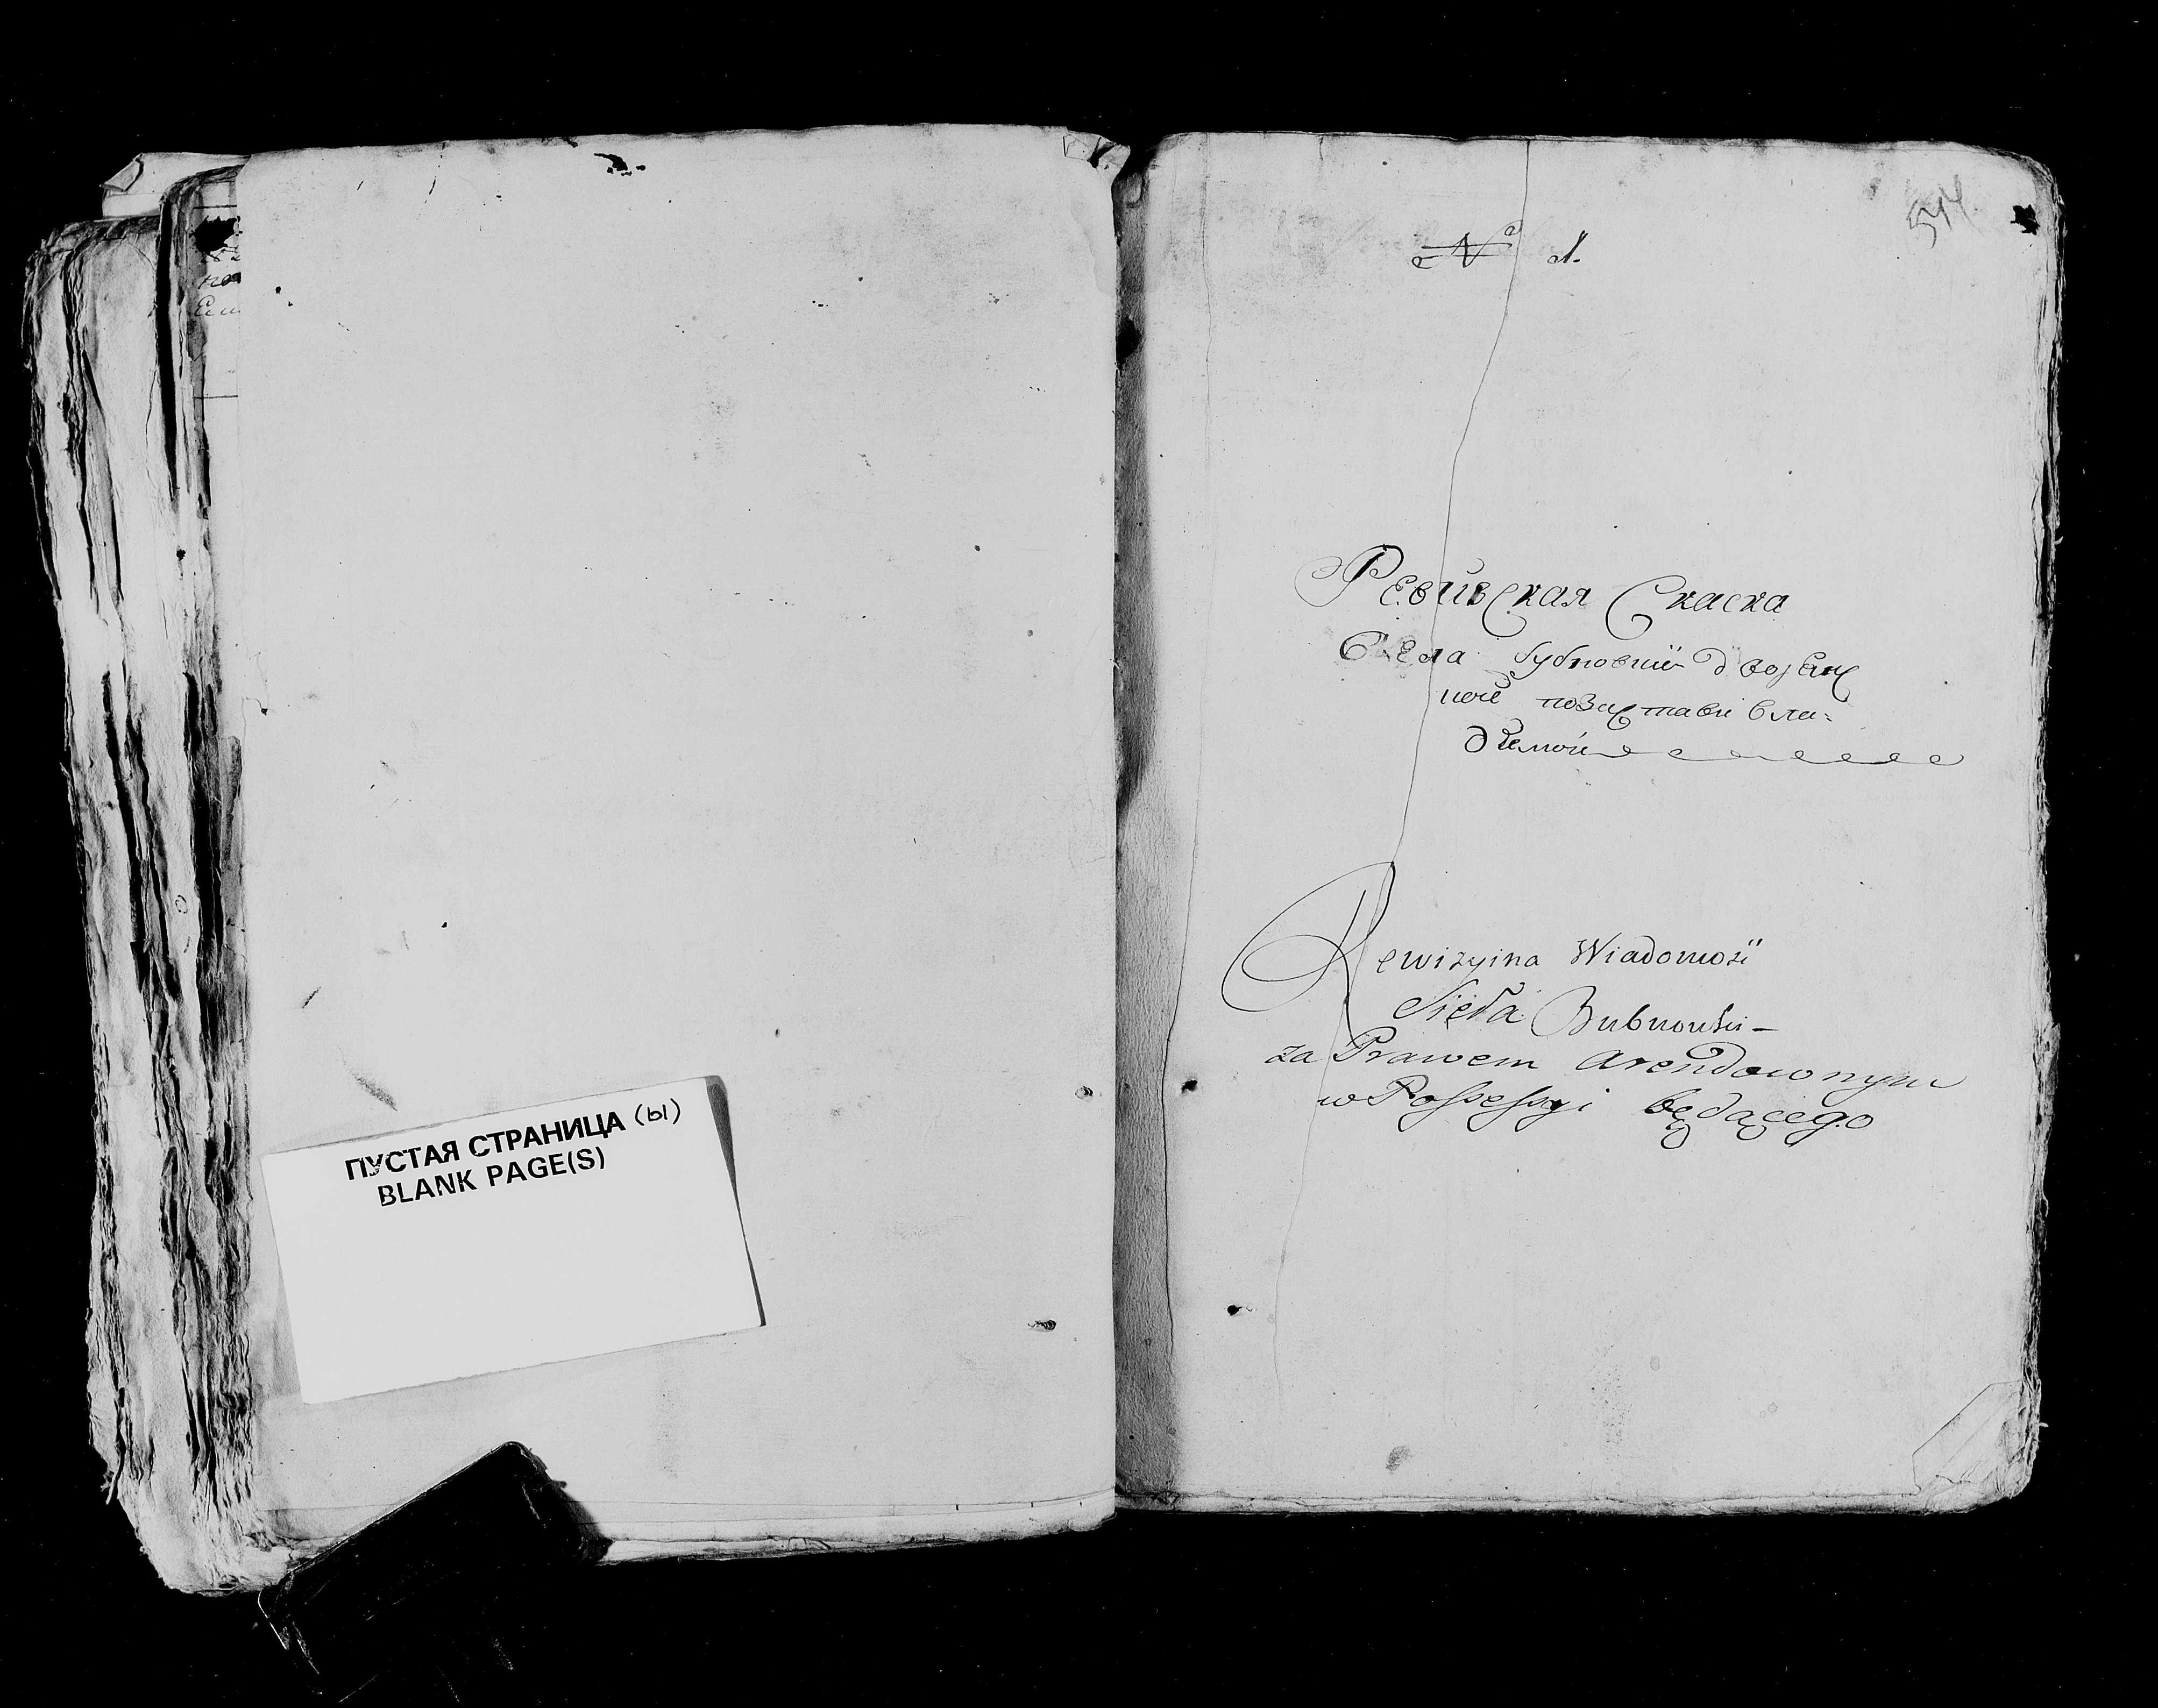 ПУСТАЯ СТРАНИЦА (Ы)
BLANK PAGE(S)
544
№ 1.
Ревизская Скаска
Села Бубновки
ной по заставы вла=
дѣемой
Rewizyina Wiadomość
Sieła Bubnowki —
za Prawem Arendownym
w Possessyi będącego